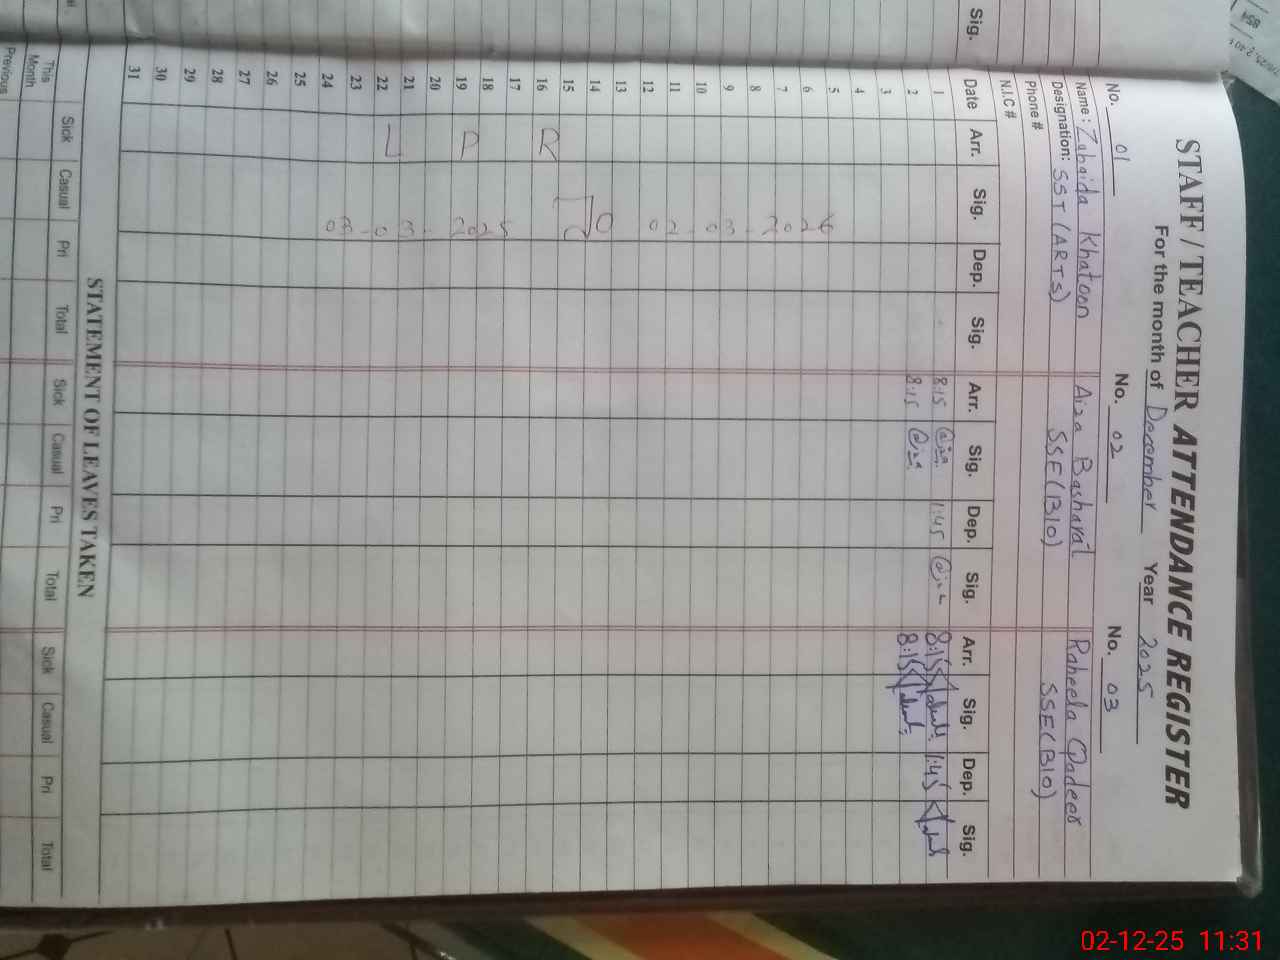 STAFF / TEACHER ATTENDANCE REGISTER
For the month of December Year 2025
No. 01 No. 02 No. 03
Name : Zahaida Khatoon Aiza Basharat Raheela Qadeer
Designation: SST (ARTS) SSE (BIO) SSE (BIO)
Phone #
N.I.C #
Sig. Date Arr. Sig. Dep. Sig. Arr. Sig. Dep. Sig. Arr. Sig. Dep. Sig.
1 8:15 1:45 8:15 1:45
2 8:15 8:15
3
4
5
6
7
8
9
10
11
12
13
14
15
16
17
18
19
20
21
22
23
24
25
26
27
28
29
30
31
02-03-2026
To
03-03-2025
STATEMENT OF LEAVES TAKEN
Sick Casual Pri Total Sick Casual Pri Total Sick Casual Pri Total
This Month
Previous
854
02-12-25 11:31